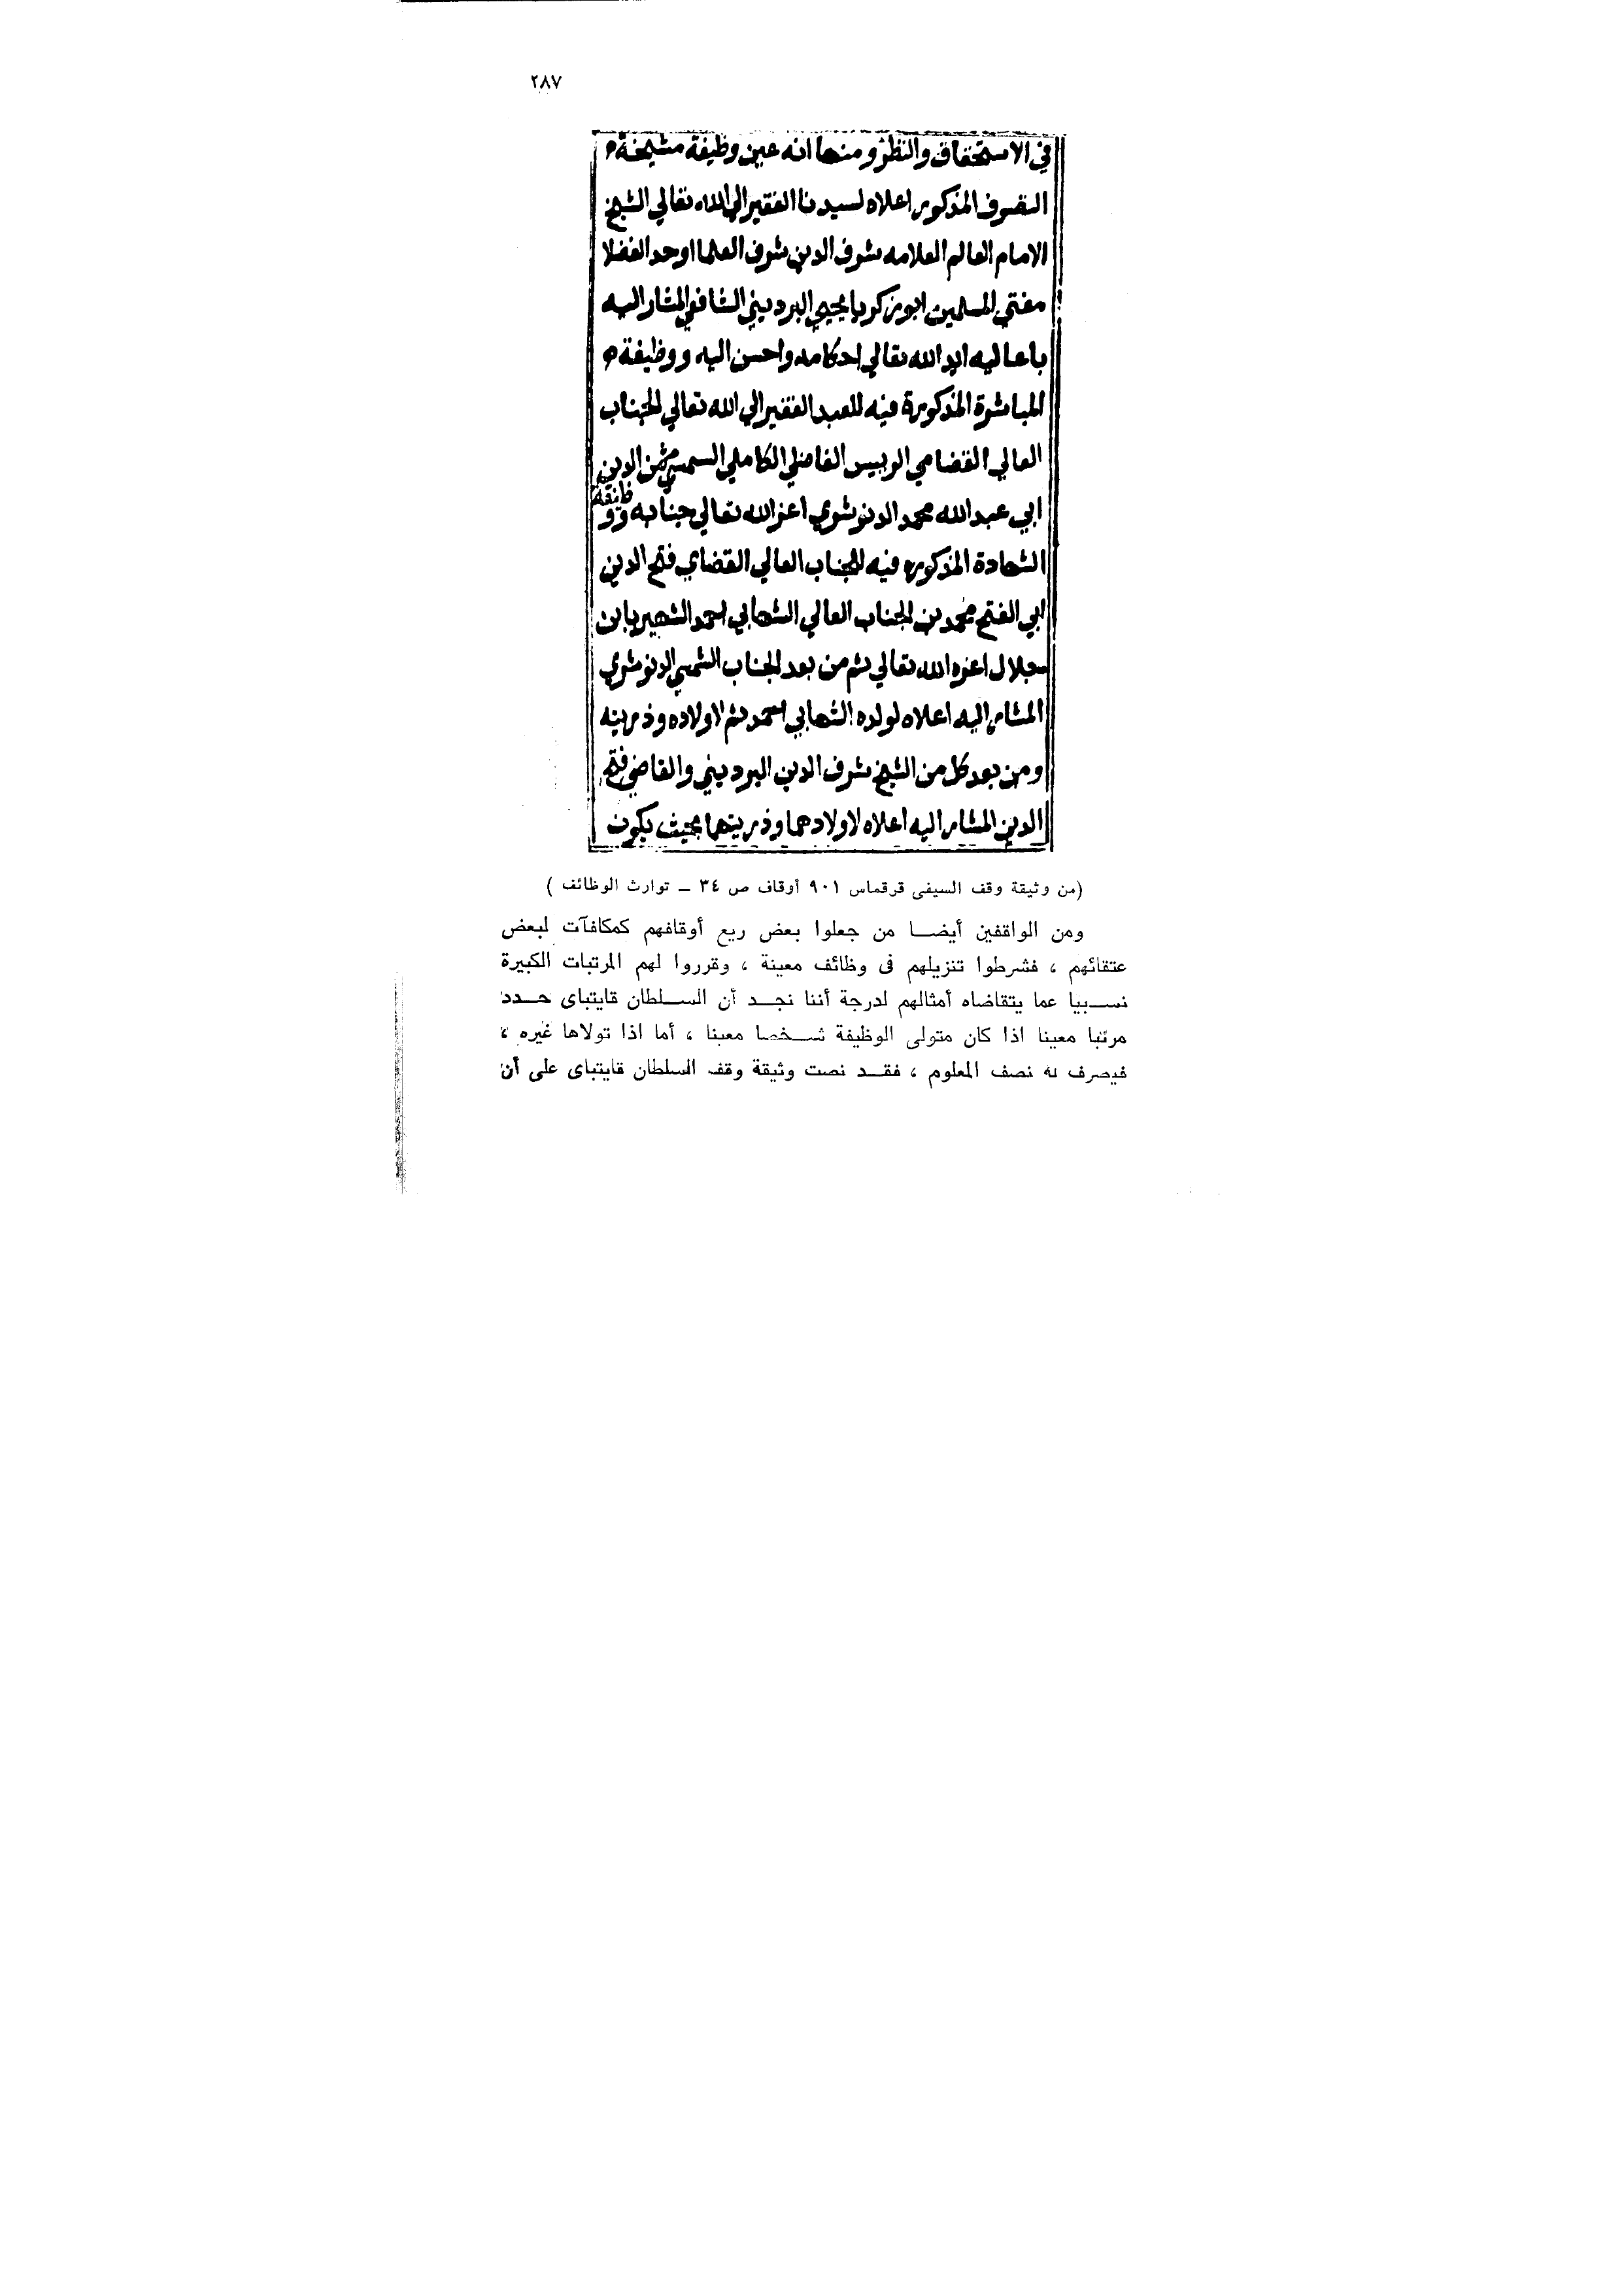 ٢٨٧
في الاستحقاق والنظر ومنها انه عين وظيفة مشيخة
التصوف المذكور اعلاه لسيدنا الفقير الى الله تعالي الشيخ
الامام العالم العلامه شرف الدين شرف العلما اوحد الفضلا
مفتي المسلمين ابو زكريا يحيي البرديني الشافعي المشار اليه
باعاليه ايد الله تعالي احكامه واحسن اليه ووظيفة
المباشرة المذكورة فيه للعبد الفقير الي الله تعالي الجناب
العالي القضاءي الرييس الفاضلي الكاملي الشمسي شمس الدين
ابي عبد الله محمد الدنوشري اعز الله تعالي جنابه ووظيفة
الشهادة المذكوره فيه للجناب العالي القضاي فتح الدين
ابي الفتح محمد بن الجناب العالي الشهابي احمد الشهير بابن
اعزه الله تعالي ثم من بعد الجناب الشمسي الدنوشري
المشار اليه اعلاه لولده الشهابي احمد ثم لاولاده وذريته
ومن بعد كل من الشيخ شرف الدين البرديني والقاضي فتح
الدين المشار اليه اعلاه لاولادهما وذريتهما بحيث يكون
(من وثيقة وقف السيفى قرقماس ٩٠١ أوقاف ص ٣٤ – توارث الوظائف )
ومن الواقفين أيضا من جعلوا بعض ريع أوقافهم كمكافآت لبعض
عتقائهم ، فشرطوا تنزيلهم فى وظائف معينة ، وقرروا لهم المرتبات الكبيرة
نسبيا عما يتقاضاه أمثالهم لدرجة أننا نجد أن السلطان قايتباى حدد
مرتبا معينا اذا كان متولى الوظيفة شخصا معينا ، أما اذا تولاها غيره ،
فيصرف له نصف المعلوم ، فقد نصت وثيقة وقف السلطان قايتباى على أن